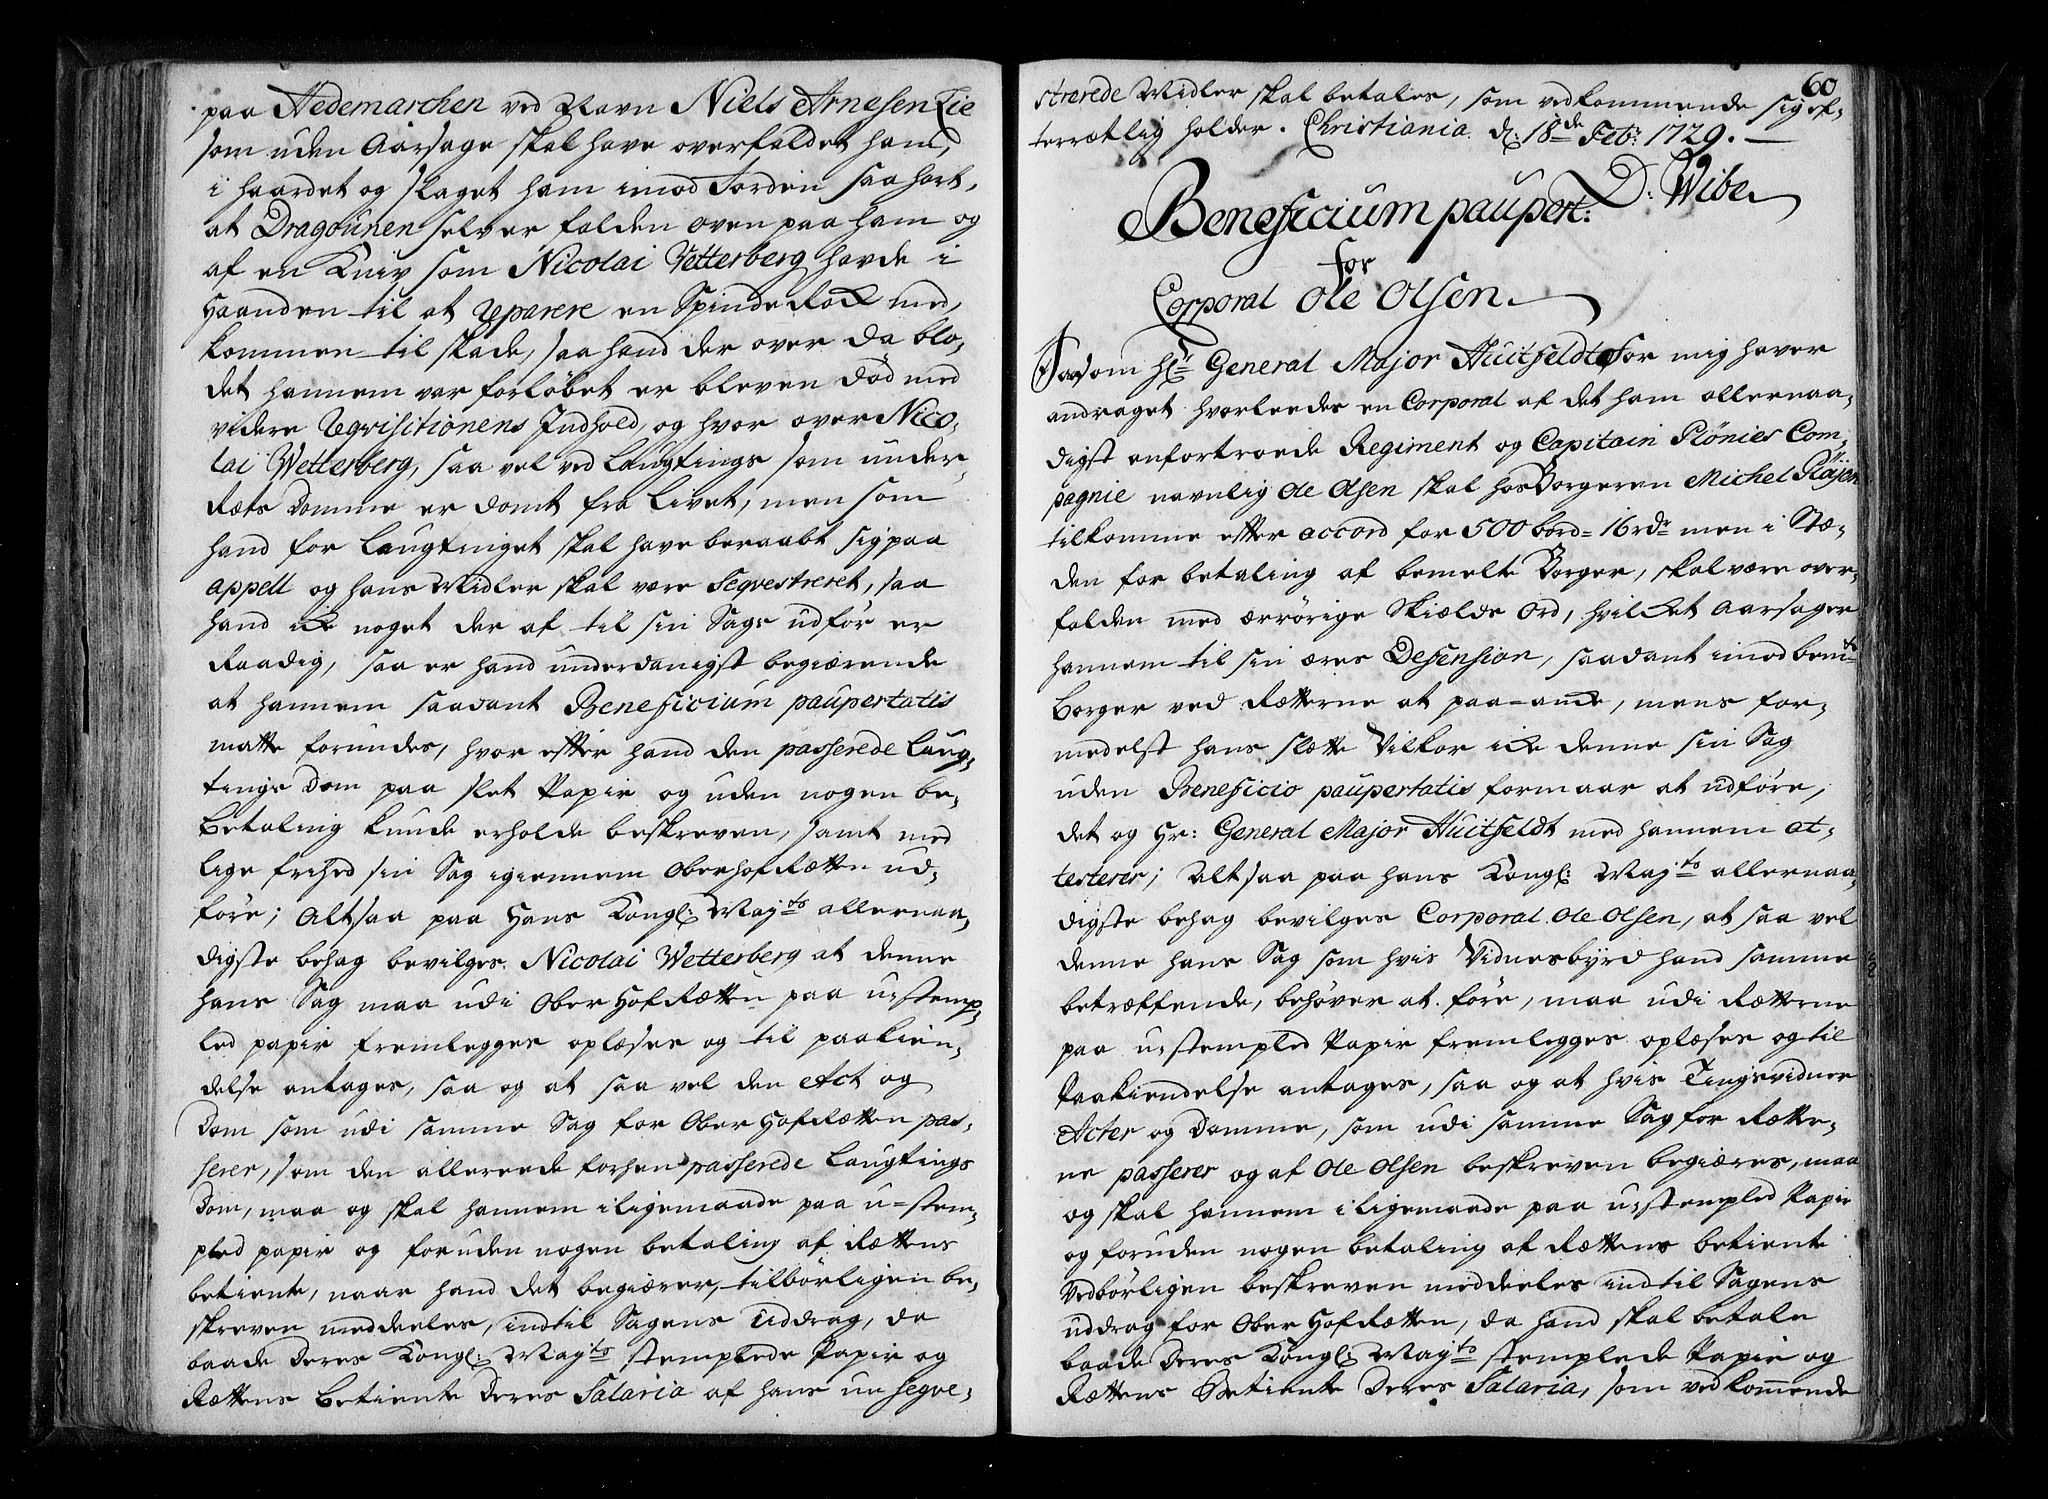 paa Hedemarchen ved Navn Niels Arnesen Lie
som uden Aarsage skal have overfaldet ham,
i haardet og slaget ham imod Jorden saa hart,
at Dragounen selv er falden oven paa ham og
af en Kniv som Nicolai Vetterberg havde i
Haanden til at reparere en Spinde Rock med,
kommen til skade, saa hand der over da blo-
det hannem var forløbet er bleven død med
videre Reqvisitionens Indhold, og hvor over Nico-
lai Wetterberg, saa vel ved Laugtings som under
Rets Domme er dømt fra Livet, men som
hand for Laugtinget skal have beraabt sig paa
appell og hans Midler skal være Seqvestreret, saa
hand icke noget der af til sin Sags udfør er
Raadig, saa er hand underdanigst begiærende
at hannem saadant Beneficium paupertatis
matte forundes, hvor efter hand den passerede Laug-
tings Dom paa slet Papir og uden nogen be-
betaling kunde erholde beskreven, samt med
lige frihed sin Sag igiennem Oberhofretten ud-
føre; Altsaa paa Hans Kongl: Maj:ts allernaa-
digste behag bevilges Nicolai Wetterberg at denne
hans Sag maa udi Ober HofRetten paa u-stemp-
led papir fremlegges oplæses og til paakien-
delse antages, saa og at saa vel den Act og
Dom som udi samme Sag for Ober HofRetten pas-
serer, som den allereede forhen passerede Laugtings
Dom, maa og skal hannem i ligemaade paa u-stem-
pled papir og foruden nogen betaling af Rettens
betiente, naar hand det begiærer, tilbørligen be-
skreven meddeeles, indtil Sagens Uddrag, da
baade Deres Kongl: May:ts stemplede Papir og
Rettens Betiente Deres Salaria af hans u seqve-
60
strerede Midler skal betales, som vedkommende sig ef-
terrætlig holder. Christiania d: 18de Feb: 1729.
D: Wibe
Beneficium paupert:
for
Corporal Ole Olsen.
Saasom Hr General Major Huitfeldt for mig haver
andraget hvorleedes en Corporal af det ham allernaa-
digst anfortroede Regiment og Capitain Plönies Com-
pagnie navnlig Ole Olsen skal hos Borgeren Michel Pläjen
tilkomme efter accord for 500 bord = 16 rdr men i Stæ-
den for betaling af bemelte Borger, skal være over-
falden med ærrørige Skields Ord, hvilket Aarsager
hannem til sin æres Defension, saadant imod bemte
Borger ved Retterne at paa-ancke, mens for-
medelst hans slette Vilkor icke denne sin Sag
uden Beneficio paupertatis formaar at udføre,
det og Hr: General Major Huitfeldt med hannem at-
testerer; Altsaa paa hans Kongl: May:ts allernaa-
digste behag bevilges Corporal Ole Olsen, at saa vel
denne hans Sag som hvis Vidnesbyrd hand samme
betreffende, behøver at føre, maa udi Retterne
paa u-stempled Papir fremlegges oplæses og til
Paakiendelse antages, saa og at hvis Tingsvidner
Acter og Domme, som udi samme Sag for Rette-
ne passerer og af Ole Olsen beskreven begiæres, maa
og skal hannem i ligemaade paa u-stempled Papir
og foruden nogen betaling af Rettens betiente
Vedbørligen beskreven meddeeles indtil Sagens
uddrag for Ober HofRetten, da hand skal betale
baade Deres Kongl: May:ts stemplede Papir og
Rettens Betiente Deres Salaria, som vedkommende